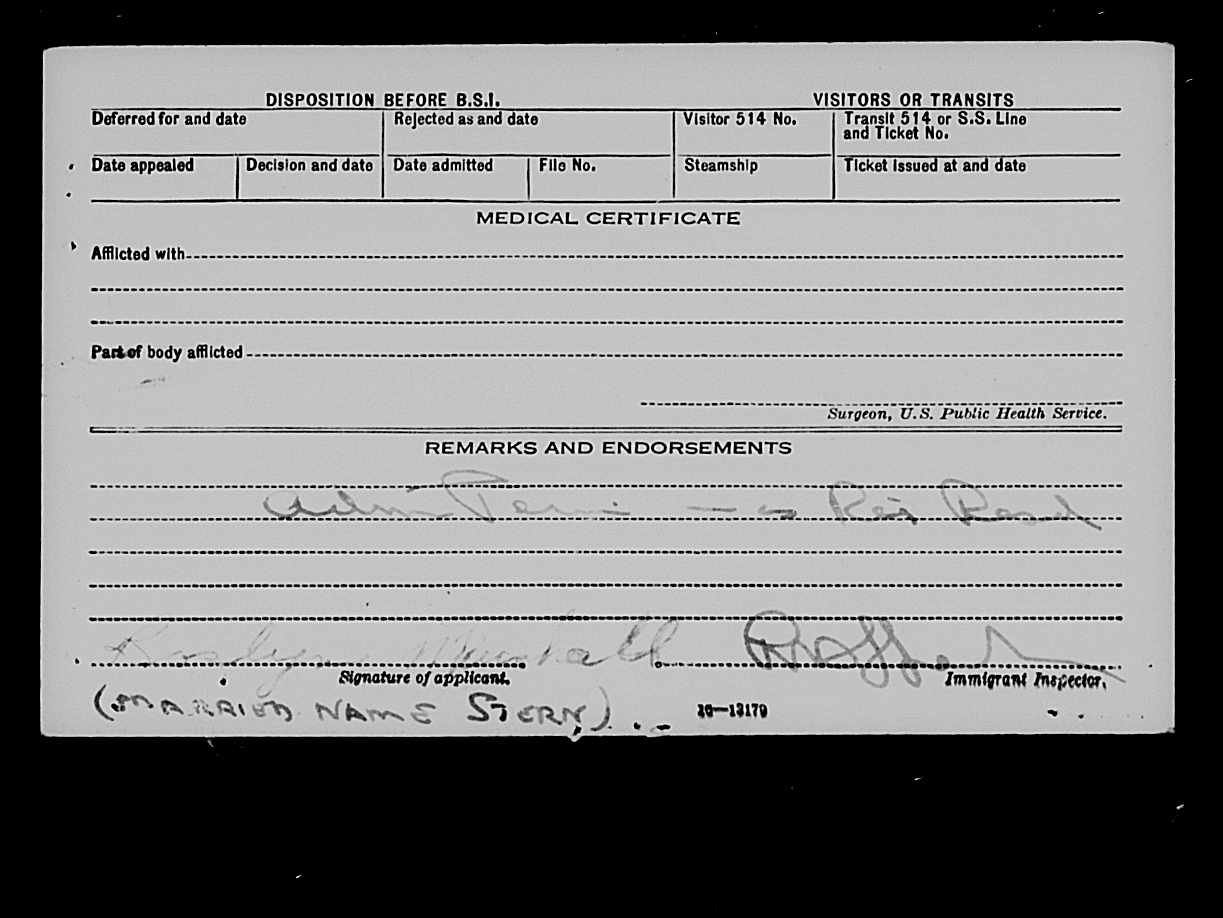 DISPOSITION BEFORE B.S.I. VISITORS OR TRANSITS
Deferred for and date Rejected as and date Visitor 514 No. Transit 514 or S.S. Line
and Ticket No.
Date appealed Decision and date Date admitted File No. Steamship Ticket issued at and date
MEDICAL CERTIFICATE
Afflicted with
Part of body afflicted
Surgeon, U.S. Public Health Service.
REMARKS AND ENDORSEMENTS
as
Marshall
Signature of applicant. Immigrant Inspector.
(MARRIED NAME STERN) 16—13179